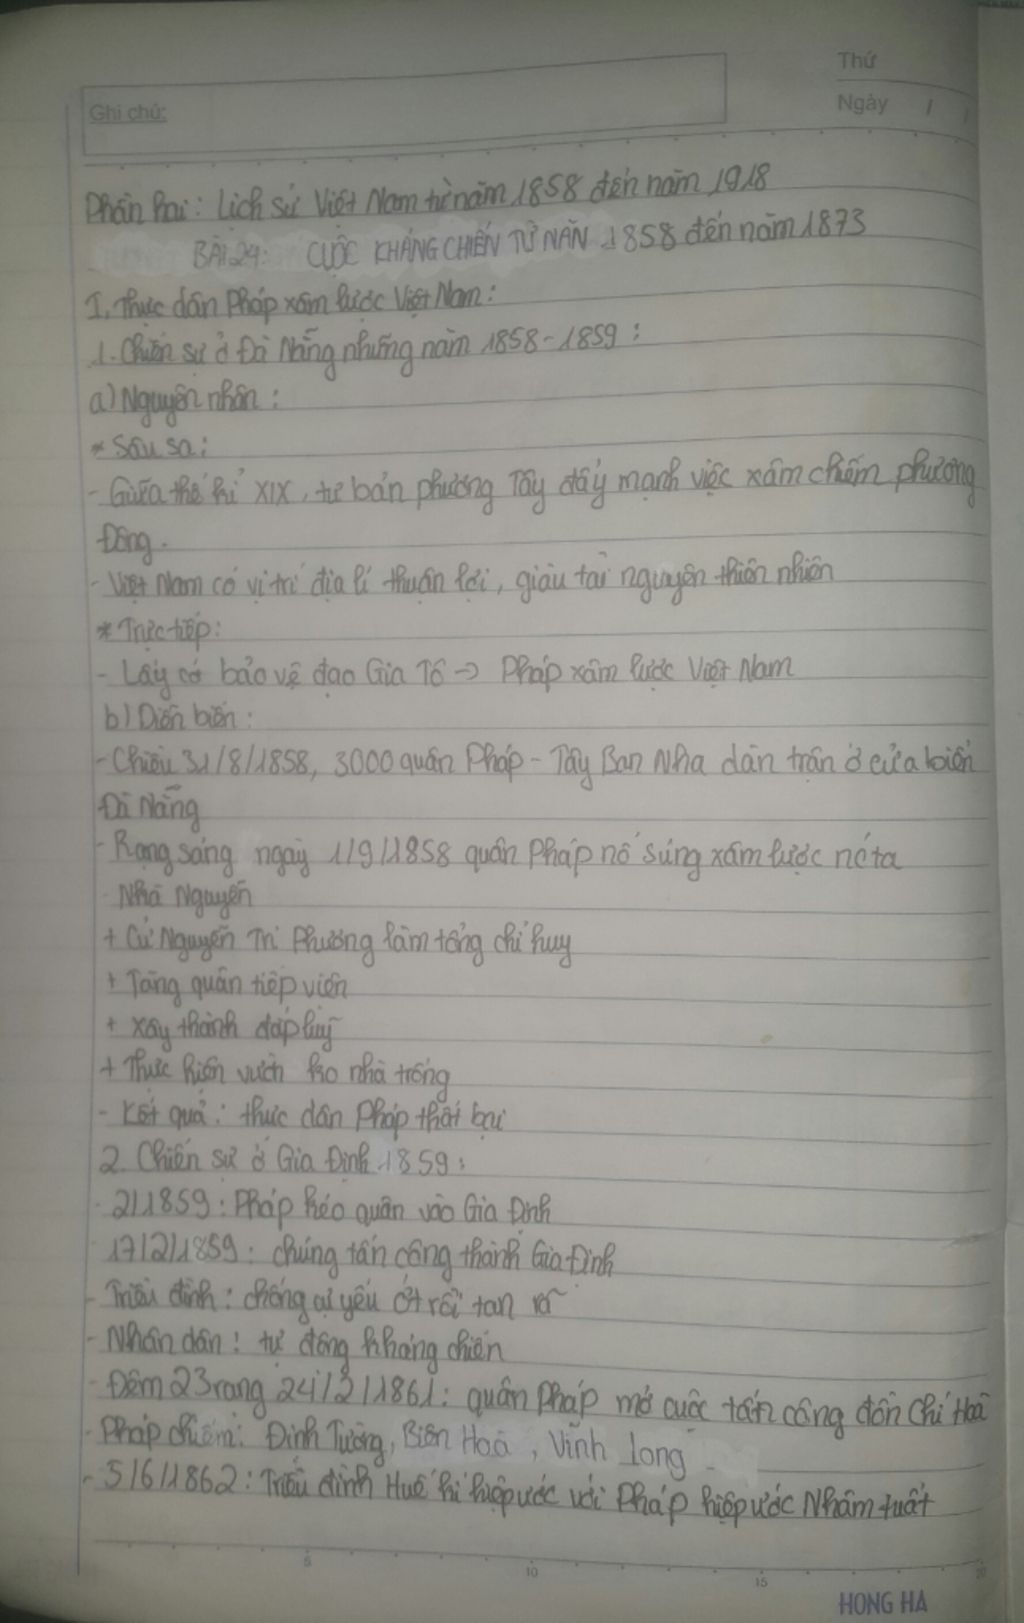 Thứ
Ghi chú:
Ngày / /
Phần hai: Lịch sử Việt Nam từ năm 1858 đến năm 1918
BÀI 24: CUỘC KHÁNG CHIẾN TỪ NĂN 1858 đến năm 1873
I. Thực dân Pháp xâm lược Việt Nam:
1. Chiến sự ở Đà Nẵng những năm 1858-1859:
a) Nguyên nhân:
* Sâu sa:
- Giữa thế kỉ XIX, tư bản phương Tây đẩy mạnh việc xâm chiếm phương
Đông.
- Việt Nam có vị trí địa lí thuận lợi, giàu tài nguyên thiên nhiên
* Trực tiếp:
- Lấy cớ bảo vệ đạo Gia Tô -> Pháp xâm lược Việt Nam
b) Diễn biến:
- Chiều 31/8/1858, 3000 quân Pháp - Tây Ban Nha dàn trận ở cửa biển
Đà Nẵng
- Rạng sáng ngày 1/9/1858 quân Pháp nổ súng xâm lược nc ta
- Nhà Nguyễn
+ Cử Nguyễn Tri Phương làm tổng chỉ huy
+ Tăng quân tiếp viện
+ Xây thành đắp luỹ
+ Thực hiện vườn ko nhà trống
- Kết quả: thực dân Pháp thất bại
2. Chiến sự ở Gia Định 1859:
- 2/1859: Pháp kéo quân vào Gia Định
17/2/1859: chúng tấn công thành Gia Định
- Triều đình: chống cự yếu ớt rồi tan rã
- Nhân dân: tự động kháng chiến
- Đêm 23 rạng 24/2/1861: quân Pháp mở cuộc tấn công đồn Chí Hoà
- Pháp chiếm: Định Tường, Biên Hoà, Vĩnh Long
- 5/6/1862: Triều đình Huế kí hiệp ước với Pháp hiệp ước Nhâm Tuất
5 10 15 20
HONG HA